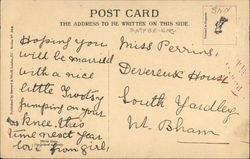 POST CARD
THE ADDRESS TO BE WRITTEN ON THIS SIDE.
Hoping you
will be married
with a nice
little Tootsy
jumping on your
knee. this
time next year
love from girls
Miss Perrins,
Devereux House
South Yardley
Nr. Bham